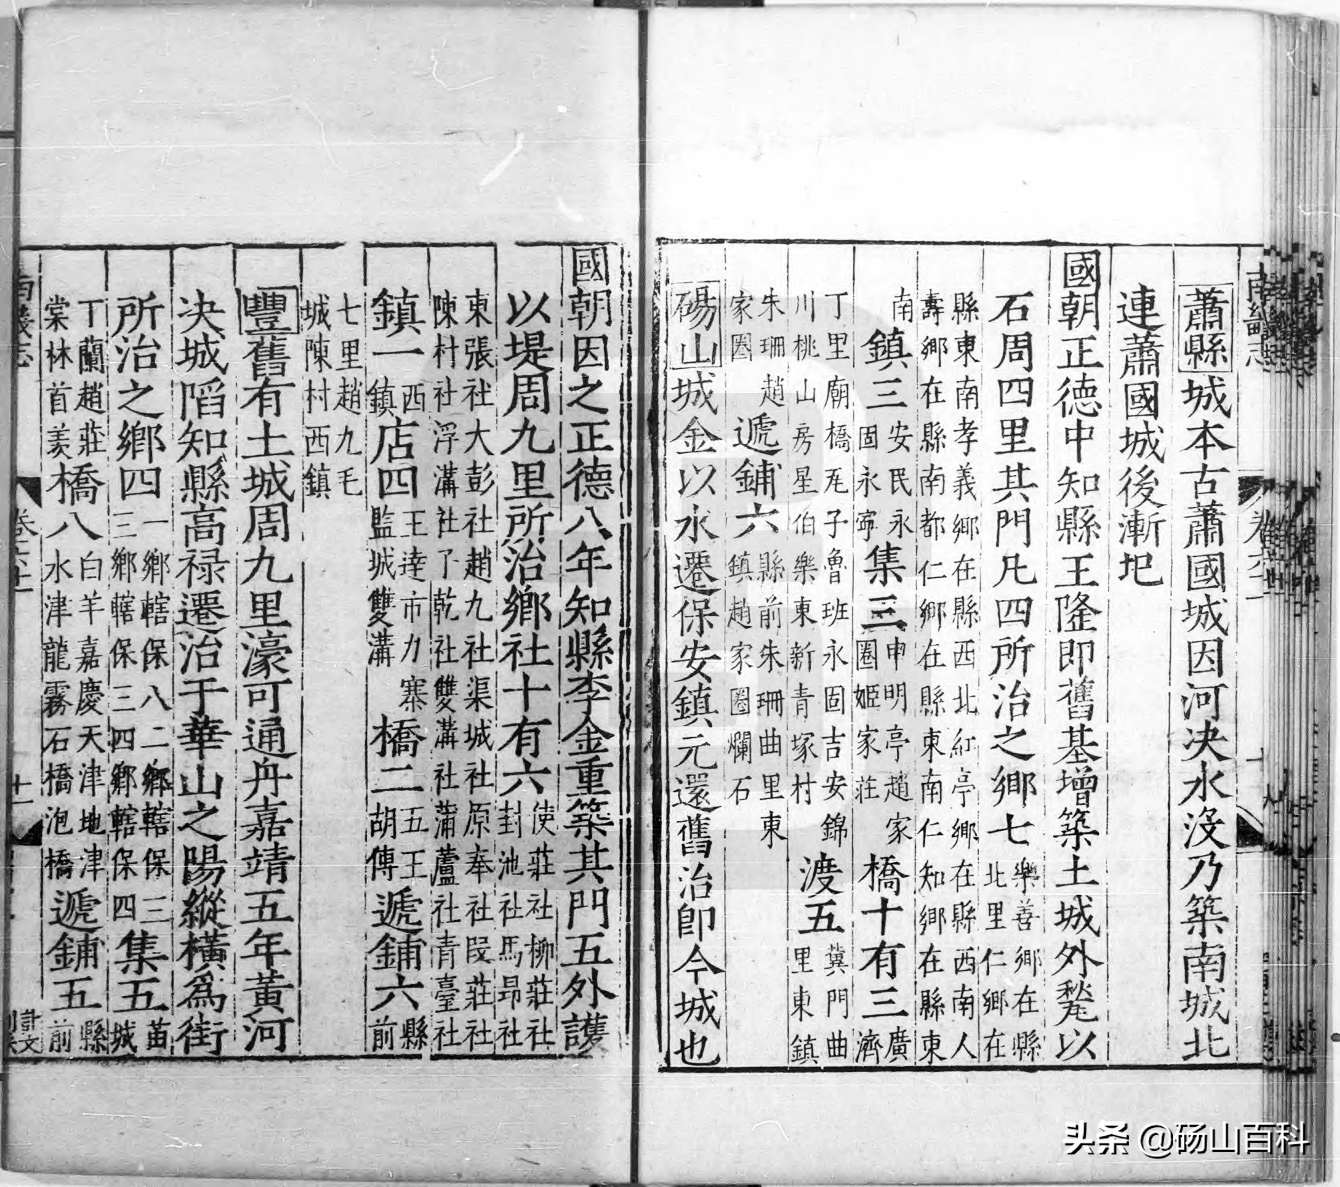 蕭縣城本古蕭國城因河决水沒乃築南城北
連蕭國城後漸圯
國朝正德中知縣王隆即舊基增築土城外甃以
石周四里其門凡四所治之鄉七樂善鄉在縣
北里仁鄉在
縣東南孝義鄉在縣西北紅亭鄉在縣西南人
壽鄉在縣南都仁鄉在縣東南仁知鄉在縣東
南鎮三安民永
固永寧集三申明亭趙家
圈姬家莊橋十有三廣
濟
丁里廟橋尾子魯班永固吉安錦
川桃山房星伯樂東新青塚村渡五冀門曲
里東鎮
朱珊趙
家圈遞鋪六縣前朱珊曲里東
鎮趙家圈爛石
碭山城金以水遷保安鎮元還舊治即今城也
國朝因之正德八年知縣李金重築其門五外護
以堤周九里所治鄉社十有六使莊社柳莊社
封池社馬昂社
東張社大彭社趙九社渠城社原奉社段莊社
陳村社浮溝社了乾社雙溝社蒲蘆社青臺社
鎮一西
鎮店四王逹市力寨
監城雙溝橋二五王
胡傅遞鋪六縣
前
七里趙九毛
城陳村西鎮
豐舊有土城周九里濠可通舟嘉靖五年黃河
决城䧟知縣高祿遷治于華山之陽縱橫爲街
所治之鄉四一鄉轄保八二鄉轄保三
三鄉轄保三四鄉轄保四集五苗
城
丁蘭趙莊
棠林首羡橋八白羊嘉慶天津地津
水津龍霧石橋泡橋遞鋪五縣
前